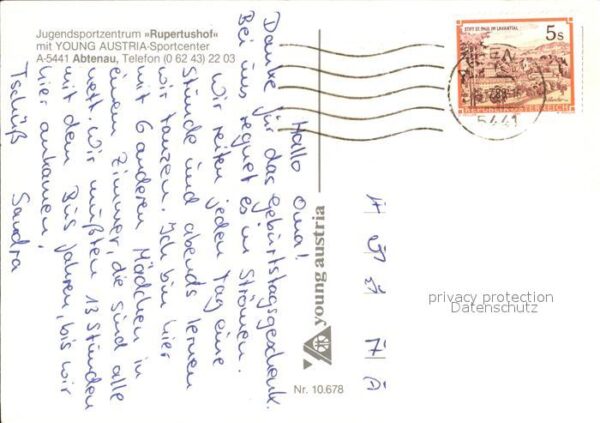 Jugendsportzentrum »Rupertushof«
mit YOUNG AUSTRIA-Sportcenter
A-5441 Abtenau, Telefon (0 62 43) 22 03
Hallo Oma!
Danke für das Gebürtstagsgeschenk.
Bei uns regnet es in Strömen.
Wir reiten jeden Tag eine
Stunde und abends lernen
wir tanzen. Ich bin hier
mit 6 anderen Mädchen in
einem Zimmer, die sind alle
nett. Wir mußten 13 Stunden
mit dem Bus fahren, bis wir
hier ankamen!
Tschüß Sandra
young austria
Nr. 10.678
STIFT ST. PAUL IM LAVANTTAL
5s
REPUBLIK ÖSTERREICH
5441
privacy protection
Datenschutz